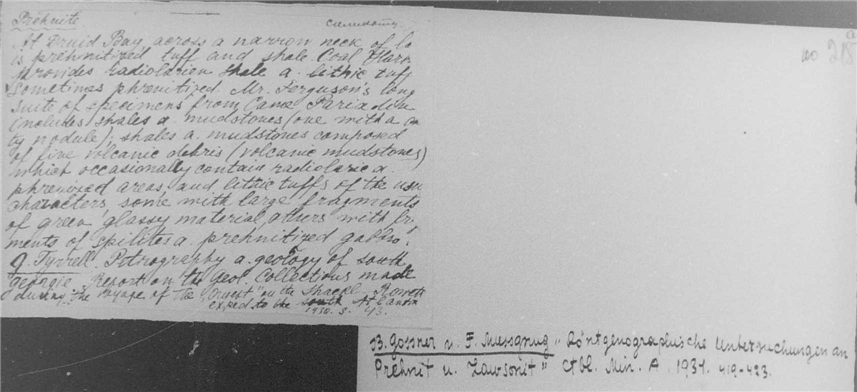 Prehnite
At Druid Bay across a narrow neck of
is prehnitized tuff and shale Coal
provides radiolarien shale a. lithic tuff
Sometimes phrenitized Mr. Ferguson's long
suite of specimens from Cape Paria
includes shales a. mudstones (one with a
ty nodule); shales a. mudstones composed
of fine volcanic debris (volcanic mudstones)
which occasionally contain radiolaric a.
phrenized areas and lithic tuffs of the
characters some with large fragments
of green glassy material, others with
ments of spilites a. prehnitized gabbro.
G. Tyrrell. Petrography a. geology of South
Georgie. Report on the geol. Collections made
during the voyage of the "Quest" on the
exped to the south
1930. S. 43.
no 218
B. Gossner u. F. Mussgnug "Röntgenographische Untersuchungen an
Prehnit u. Lawsonit" Ctbl. Min. A. 1931. 419-423.